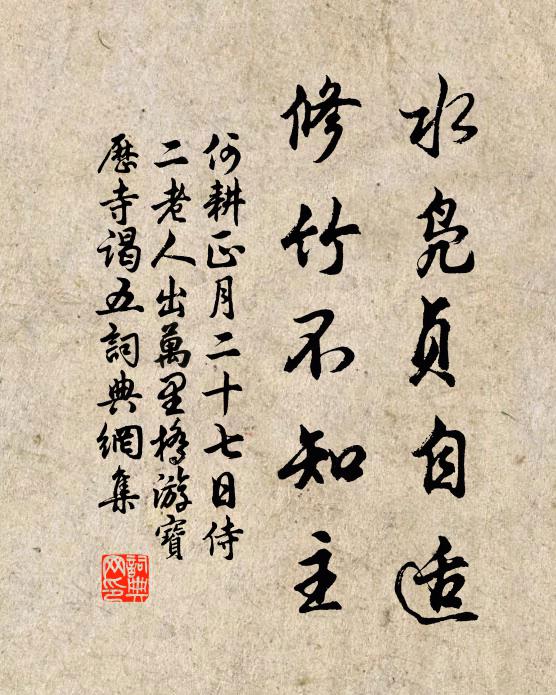 水凫貞自适
修竹不知主
何耕正月二十七日侍
二老人出萬里橋游寶
歷寺谒五詞典網集
詞典网印